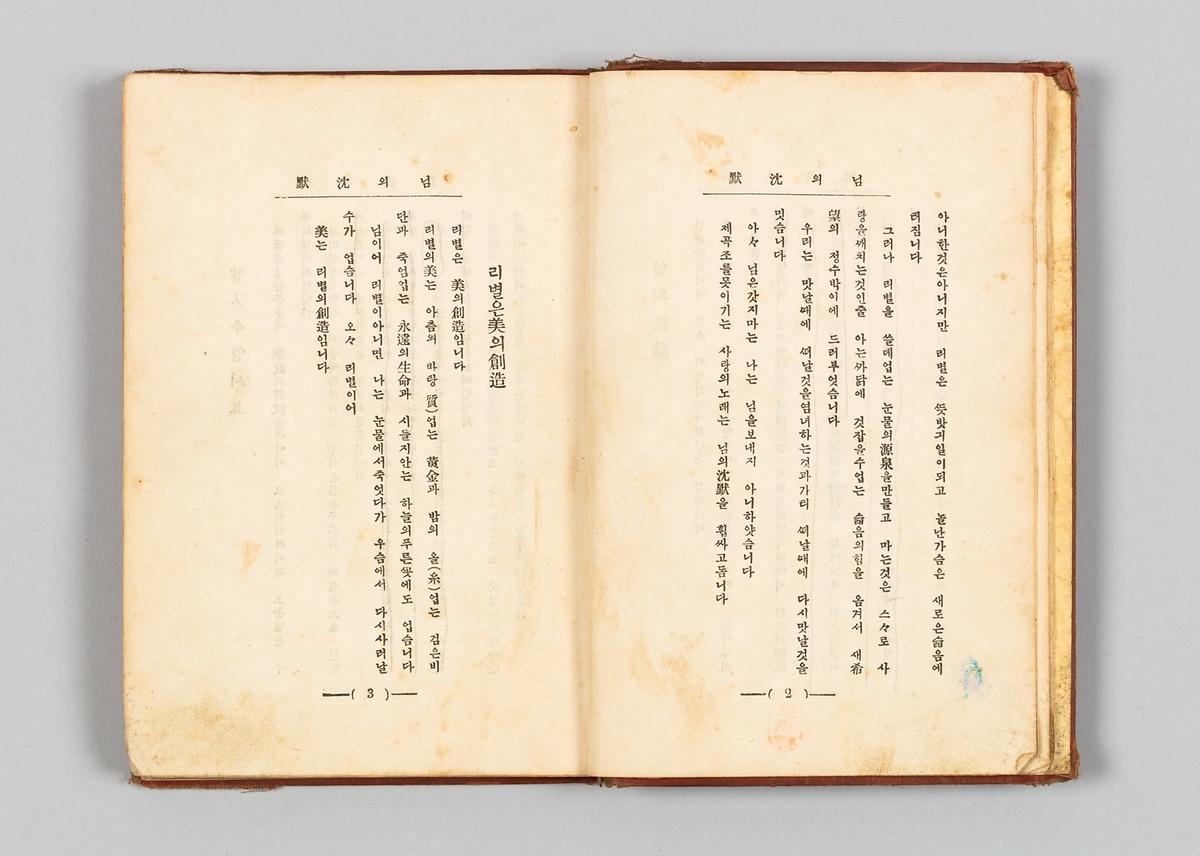 님의沈默
아니한것은아니지만 리별은 뜻밧긔일이되고 놀난가슴은 새로은슯음에
터짐니다
그러나 리별을 쓸데업는 눈물의源泉을만들고 마는것은 스々로 사
랑을깨치는것인줄 아는까닭에 것잡을수업는 슯음의힘을 옴겨서 새希
望의 정수박이에 드러부엇슴니다
우리는 맛날때에 떠날것을염녀하는것과가티 떠날때에 다시맛날것을
밋슴니다
아々 님은갓지마는 나는 님을보내지 아니하얏슴니다
제곡조를못이기는 사랑의노래는 님의沈默을 휩싸고돔니다
( 2 )
님의沈默
리별은美의創造
리별은 美의創造임니다
리별의美는 아츰의 바탕(質)업는 黃金과 밤의 올(糸)업는 검은비
단과 죽엄업는 永遠의生命과 시들지안는 하늘의푸른꼿에도 업슴니다
님이어 리별이아니면 나는 눈물에서죽엇다가 우슴에서 다시사러날
수가 업슴니다 오々 리별이어
美는 리별의創造임니다
( 3 )